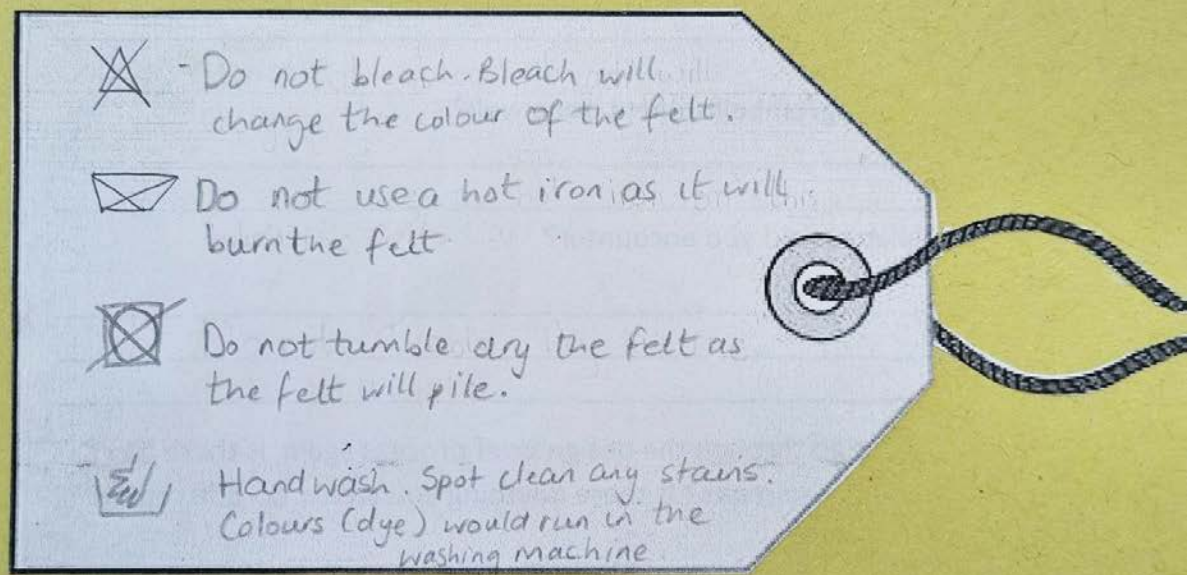 - Do not bleach. Bleach will
change the colour of the felt.
Do not use a hot iron as it will
burn the felt
Do not tumble dry the felt as
the felt will pile.
Hand wash. Spot clean any stains.
Colours (dye) would run in the
washing machine.